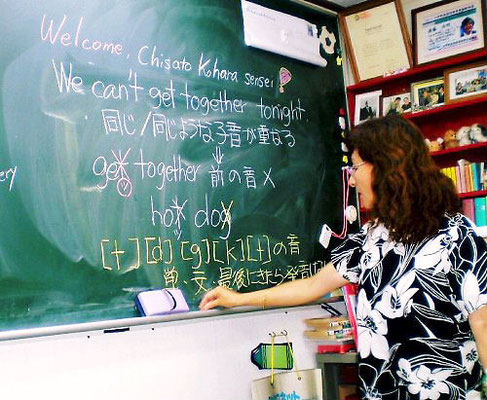 Welcome, Chisato Kohara sensei
We can't get together tonight.
・同じ/同じような子音が重なる
get together 前の音×
hot dog
[t][d][g][k][t]の音
単、文、最後にきたら発音